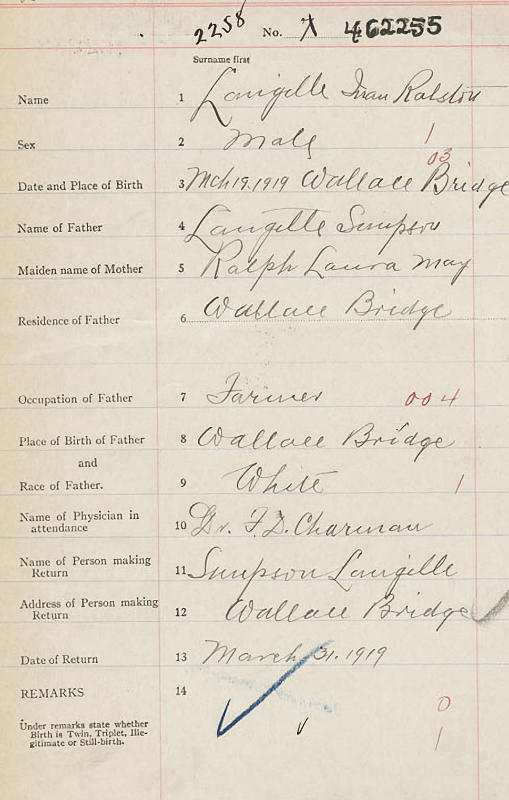 2258 No. 7 462255
Surname first
Name 1 Langille Ivan Ralston
Sex 2 Male 1
03
Date and Place of Birth 3 Mch 19.1919 Wallace Bridge
Name of Father 4 Langille Simpson
Maiden name of Mother 5 Ralph Laura May
Residence of Father 6 Wallace Bridge
Occupation of Father 7 Farmer 004
Place of Birth of Father 8 Wallace Bridge
and
Race of Father. 9 White 1
Name of Physician in
attendance 10 Dr. F. D. Charman
Name of Person making
Return 11 Simpson Langille
Address of Person making
Return 12 Wallace Bridge
Date of Return 13 March 31. 1919
REMARKS 14
0
Under remarks state whether
Birth is Twin, Triplet, Ille-
gitimate or Still-birth. 1